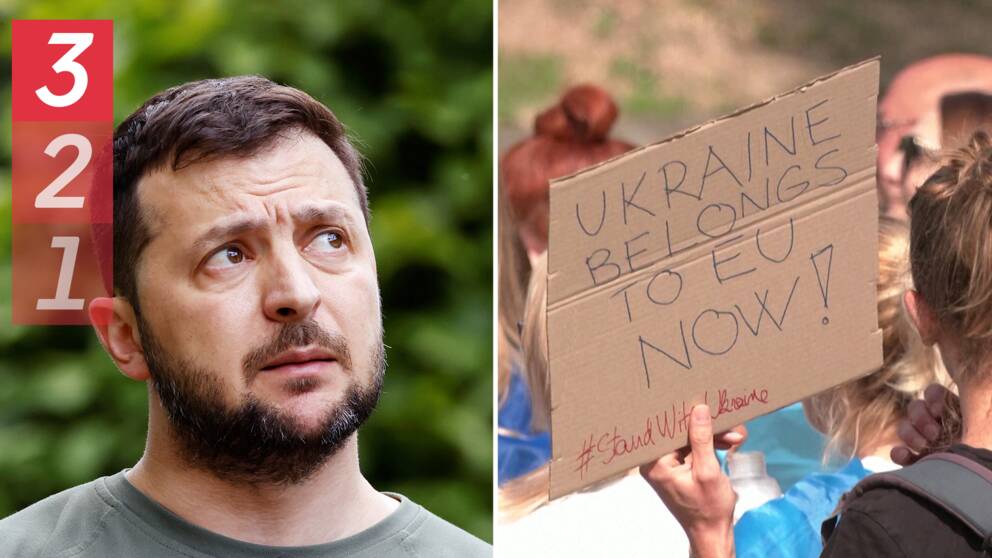 3
2
1
UKRAINE
BELONGS
TO EU
NOW!
#StandWithUkraine